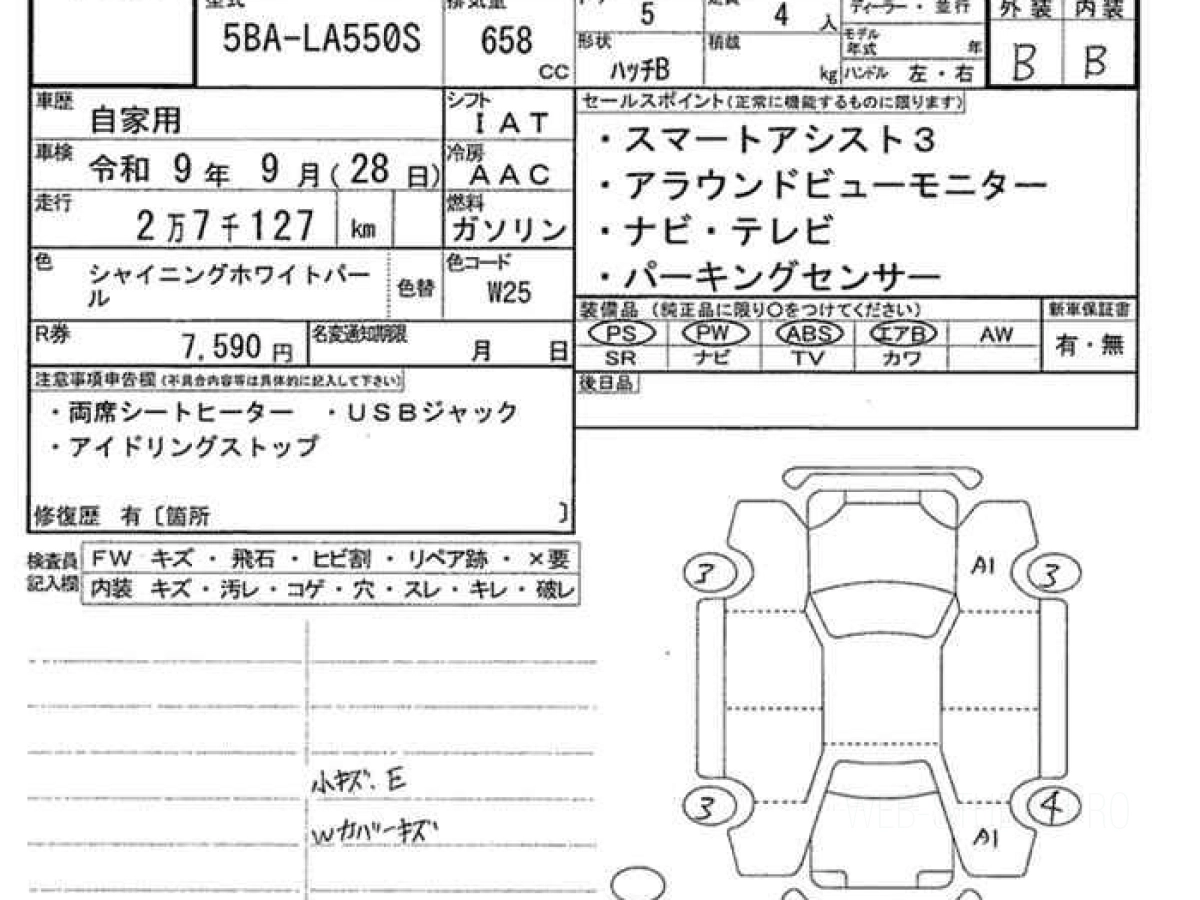 型式
5BA-LA550S
排気量
658
CC
5
4 人
形状
ハッチB
積載
kg
ディーラー・並行
モデル年式 年
ハンドル 左・右
外装 内装
B B
車歴
自家用
シフト
IAT
車検
令和 9年 9月(28日)
冷房
AAC
走行
2万7千127 km
燃料
ガソリン
色
シャイニングホワイトパール
色替
色コード
W25
R券
7,590 円
名変通知期限
月 日
セールスポイント(正常に機能するものに限ります)
・スマートアシスト3
・アラウンドビューモニター
・ナビ・テレビ
・パーキングセンサー
装備品 (純正品に限り○をつけてください)
新車保証書
PS PW ABS エアB AW
有・無
SR ナビ TV カワ
後日品
注意事項申告欄(不具合内容等は具体的に記入して下さい)
・両席シートヒーター ・USBジャック
・アイドリングストップ
修復歴 有〔箇所 〕
検査員記入欄
FW キズ・飛石・ヒビ割・リペア跡・×要
内装 キズ・汚レ・コゲ・穴・スレ・キレ・破レ
小キズ.E
Wカバーキズ
3
A1
3
3
4
A1